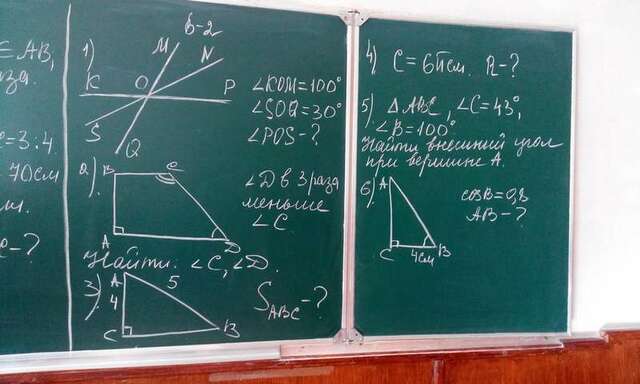 ∈ AB,
=3:4
70см
-?
В-2
1)
M
N
K
O
P
S
Q
∠KOM=100°
∠SOQ=30°
∠POS-?
2)
B
C
A
D
∠D в 3 раза
меньше
∠C.
Найти: ∠C, ∠D.
3)
A
5
4
C
B
S ABC -?
4) C=6π см. R-?
5) Δ ABC, ∠C=43°,
∠B=100°
Найти внешний угол
при вершине A.
6)
A
C
4см
B
cosB=0,8
AB-?